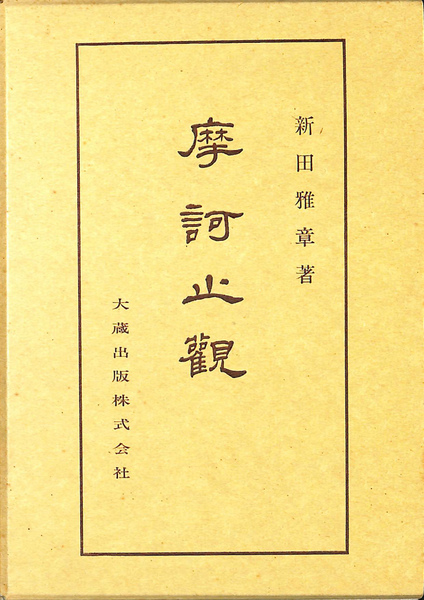 新田雅章著
摩訶止觀
大蔵出版株式会社